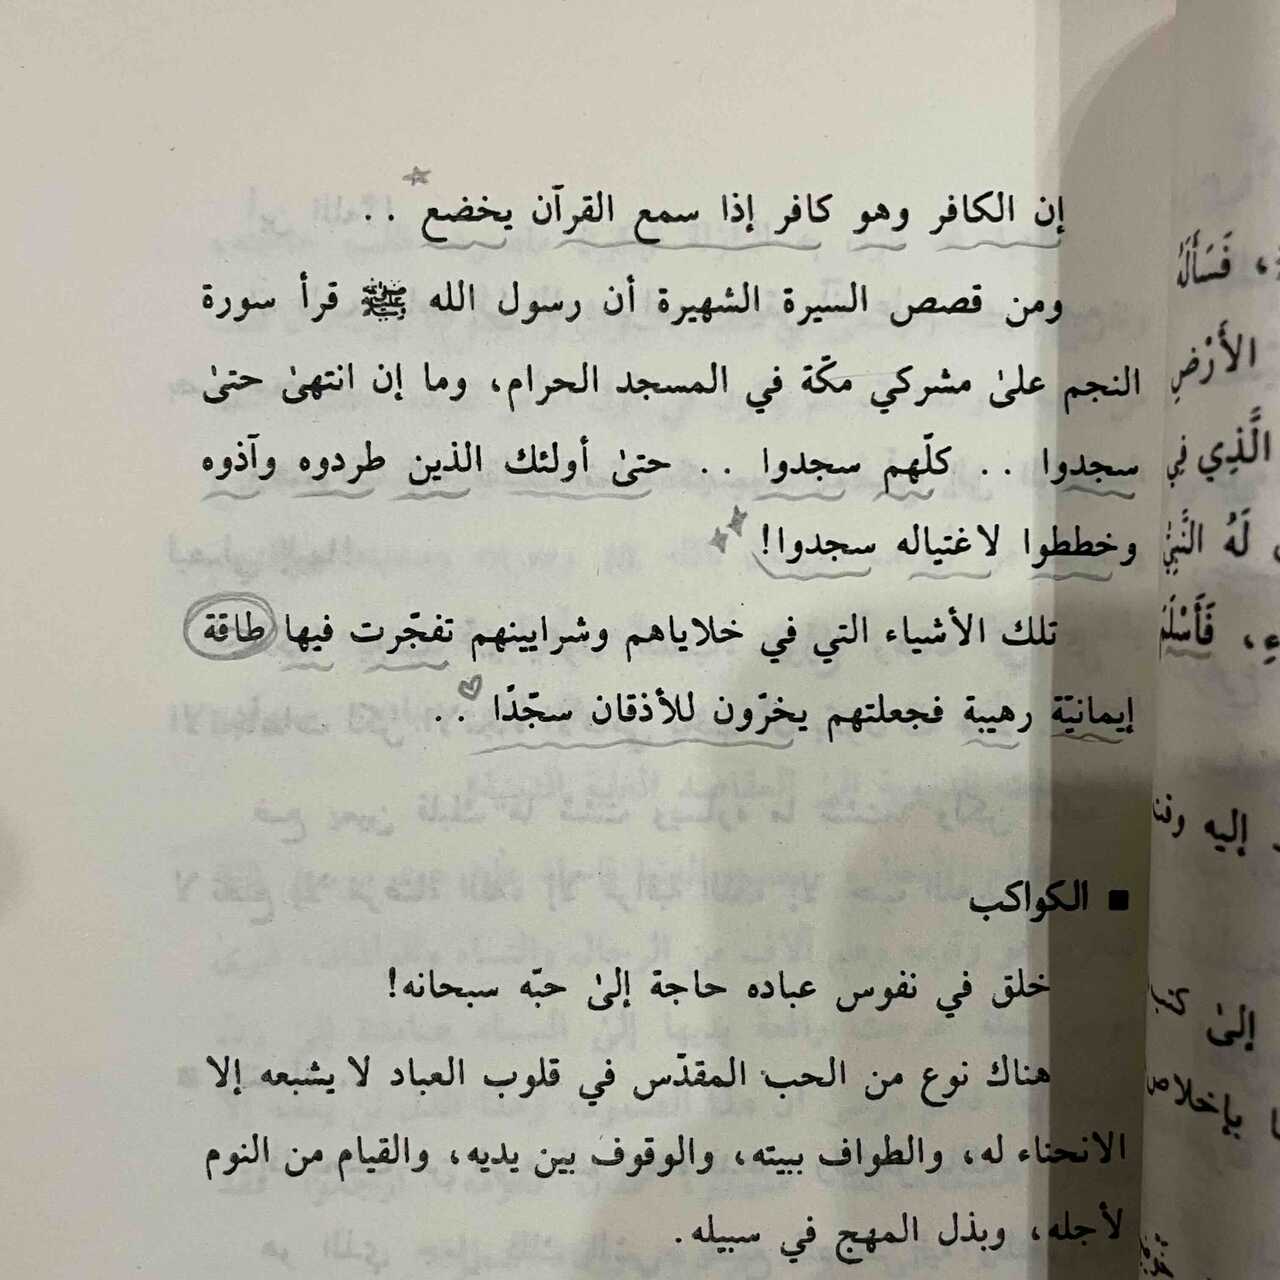 إن الكافر وهو كافر إذا سمع القرآن يخضع ..
ومن قصص السيرة الشهيرة أن رسول الله ﷺ قرأ سورة
النجم علىٰ مشركي مكّة في المسجد الحرام، وما إن انتهىٰ حتىٰ
سجدوا .. كلّهم سجدوا .. حتىٰ أولئك الذين طردوه وآذوه
وخططوا لاغتياله سجدوا!
تلك الأشياء التي في خلاياهم وشرايينهم تفجّرت فيها طاقة
إيمانيّة رهيبة فجعلتهم يخرّون للأذقان سجّدًا ..
■ الكواكب
خلق في نفوس عباده حاجة إلىٰ حبّه سبحانه!
هناك نوع من الحب المقدّس في قلوب العباد لا يشبعه إلا
الانحناء له، والطواف ببيته، والوقوف بين يديه، والقيام من النوم
لأجله، وبذل المهج في سبيله.
فَسَأَلَهُ
الأَرْضِ
الَّذِي فِي
لَهُ النَّبِيُّ
فَأَسْلَمَ
إليه
إلىٰ
بإخلاص